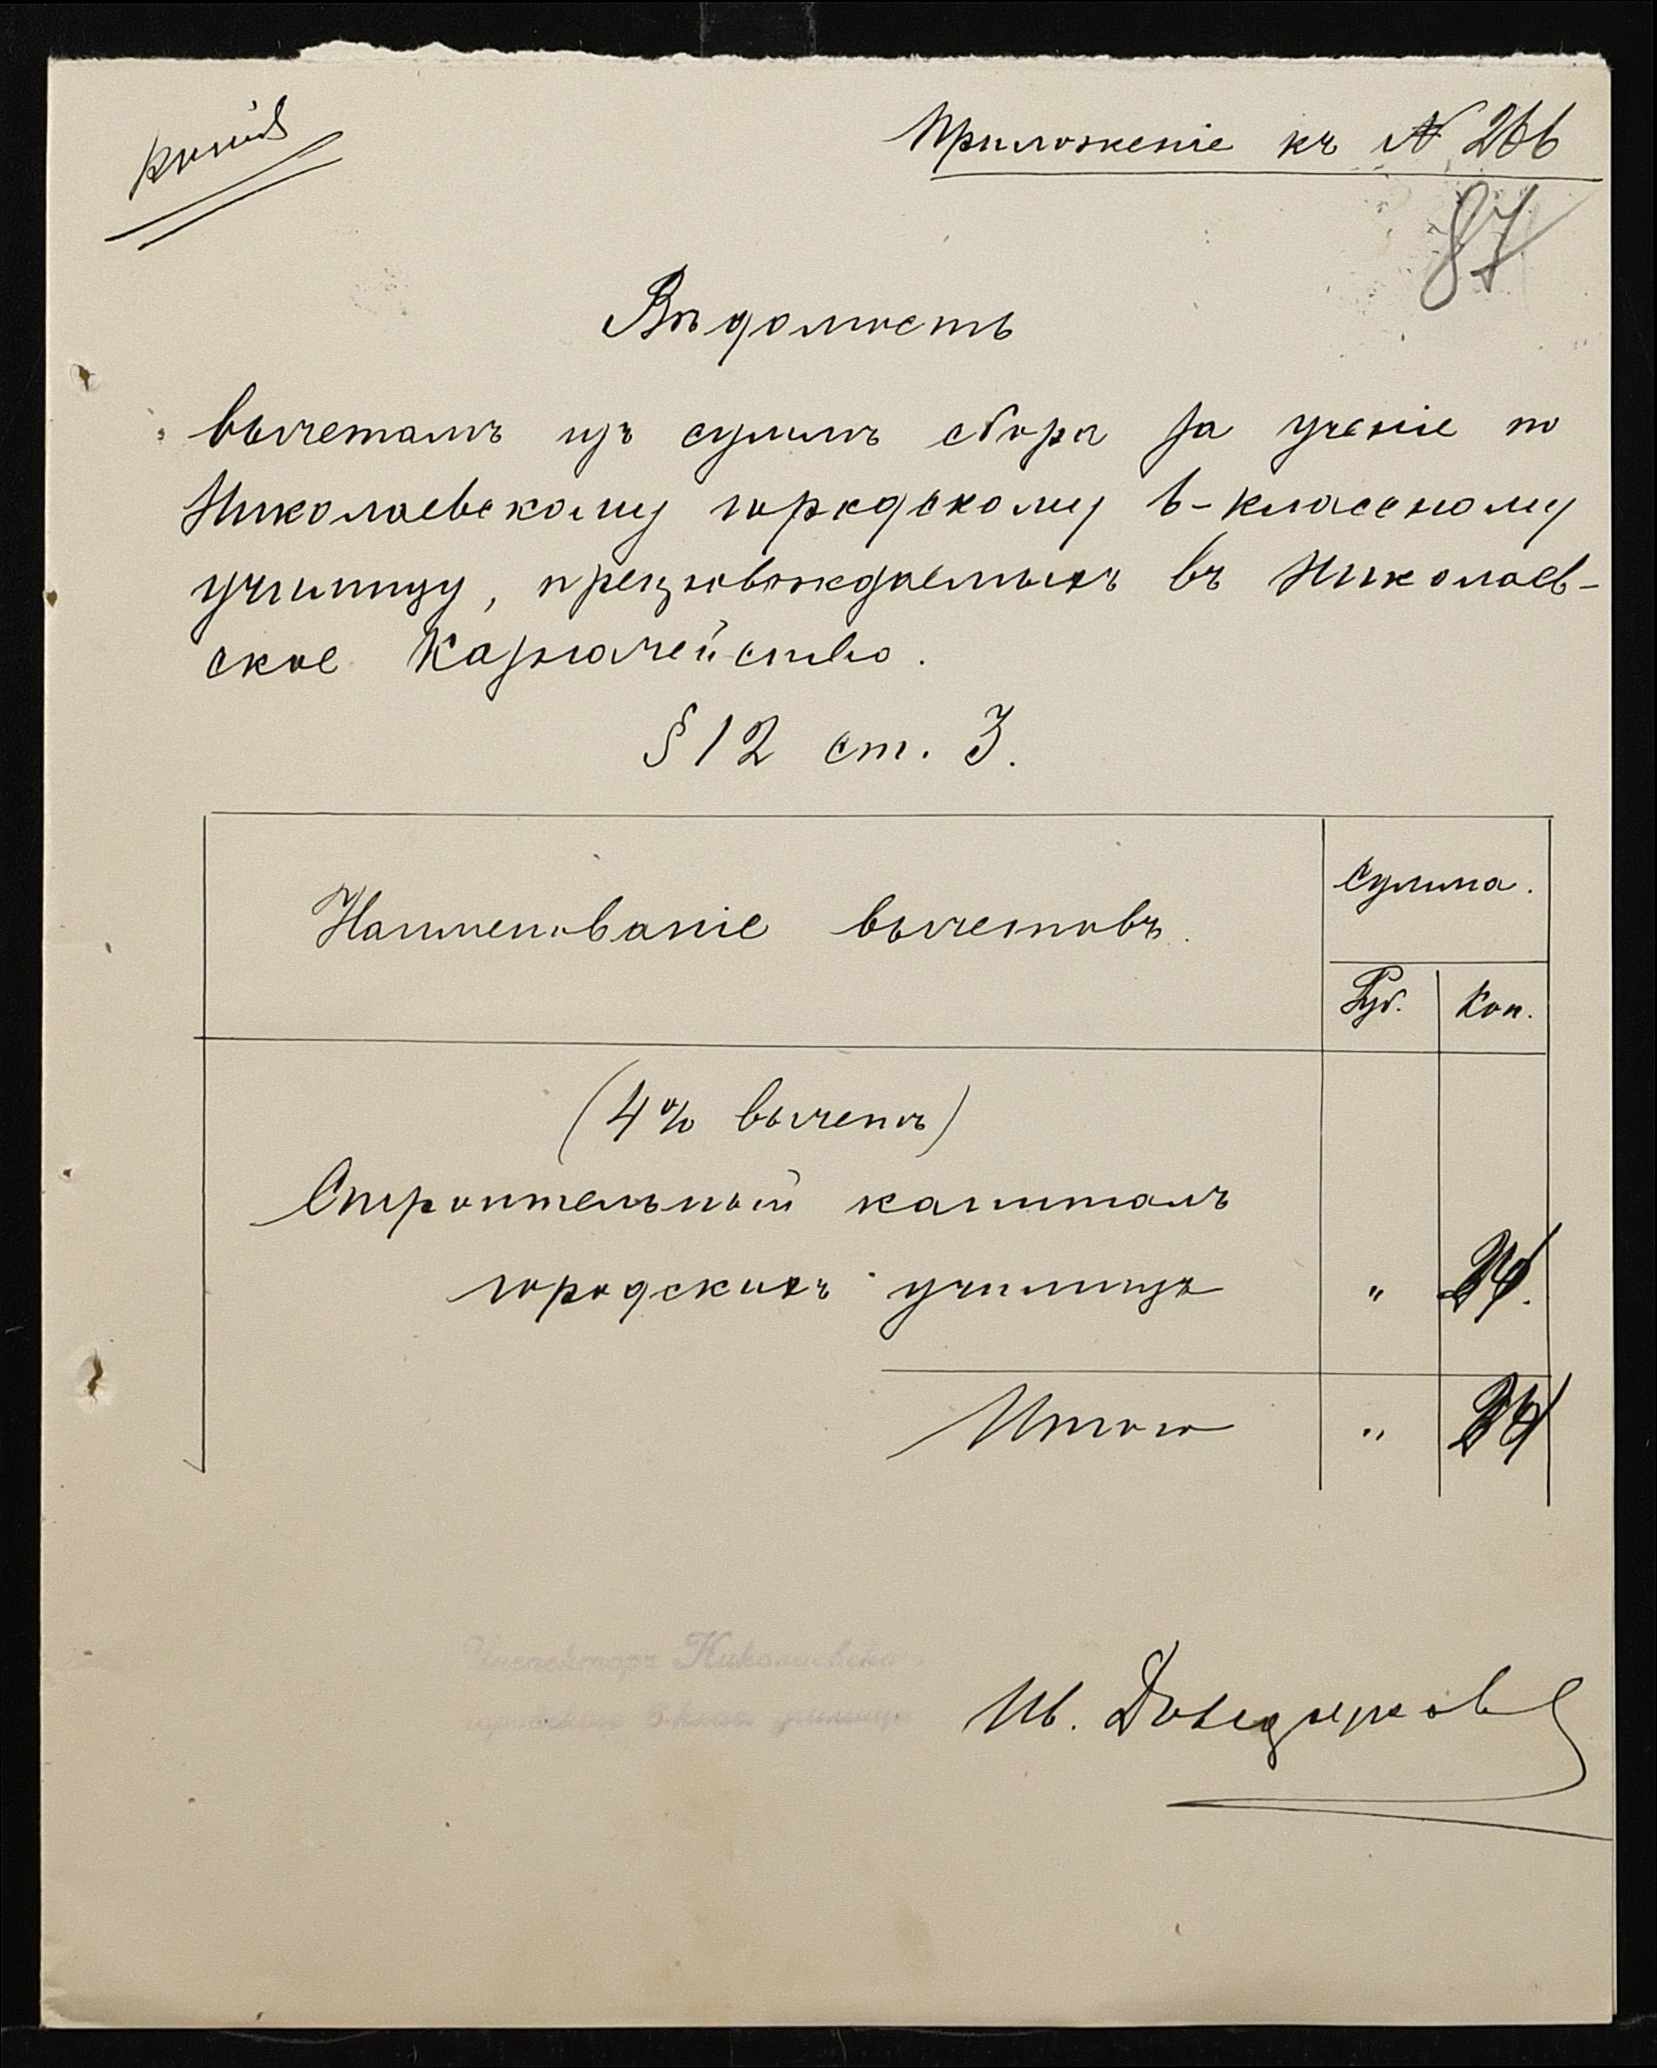 копія
Приложеніе къ № 266
87
Вѣдомость
вычетамъ изъ суммъ сбора за ученіе по
Николаевскому городскому 6-классному
училищу, препровождаемыхъ въ Николаев-
ское Казначейство.
§ 12 ст. 3.
Наименованіе вычетовъ.
Сумма.
Руб. Коп.
(4% вычетъ)
Строительный капиталъ
городскихъ училищъ " 24.
Итого " 24
Инспекторъ Николаевскаго
городского 6-класс. училища
Ив.